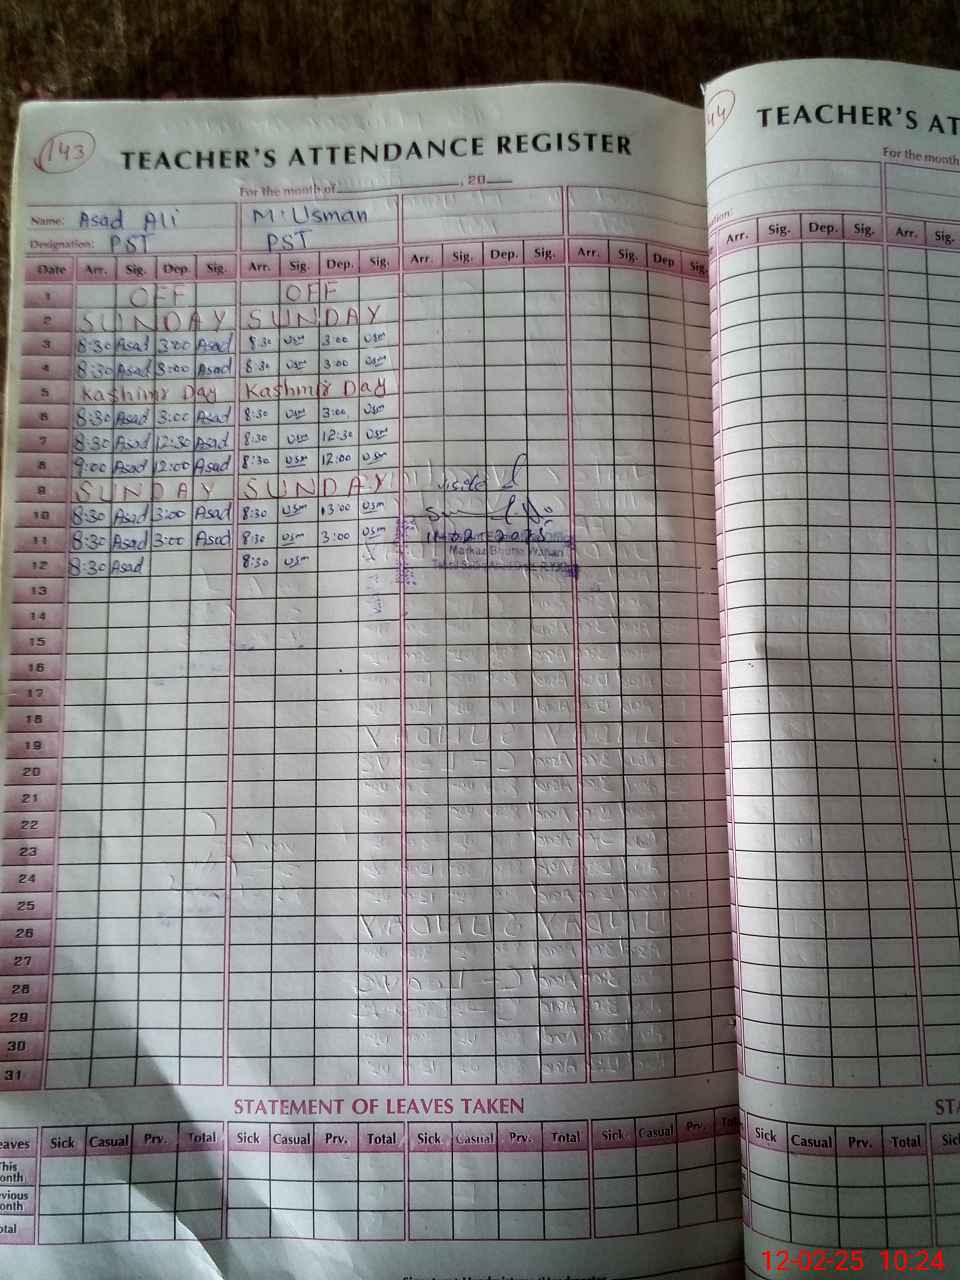 143
TEACHER'S ATTENDANCE REGISTER
For the month of , 20
Name: Asad Ali M. Usman
Designation: PST PST
Date Arr. Sig. Dep. Sig. Arr. Sig. Dep. Sig. Arr. Sig. Dep. Sig. Arr. Sig. Dep Sig.
1 OFF OFF
2 SUNDAY SUNDAY
3 8:30 Asad 3:00 Asad 8:30 usm 3:00 usm
4 8:30 Asad 3:00 Asad 8:30 usm 3:00 usm
5 Kashmir Day Kashmir Day
6 8:30 Asad 3:00 Asad 8:30 usm 3:00 usm
7 8:30 Asad 12:30 Asad 8:30 usm 12:30 usm
8 9:00 Asad 12:00 Asad 8:30 usm 12:00 usm
9 SUNDAY SUNDAY visited
10 8:30 Asad 3:00 Asad 8:30 usm 3:00 usm
11 8:30 Asad 3:00 Asad 8:30 usm 3:00 usm
Markaz
12 8:30 Asad 8:30 usm
13
14
15
16
17
18
19
20
21
22
23
24
25
26
27
28
29
30
31
STATEMENT OF LEAVES TAKEN
eaves Sick Casual Prv. Total Sick Casual Prv. Total Sick Casual Prv. Total Sick Casual Prv. Tot
This
onth
vious
onth
otal
44
TEACHER'S AT
For the month
ation:
Arr. Sig. Dep. Sig. Arr. Sig.
STA
Sick Casual Prv. Total Sic
12-02-25 10:24